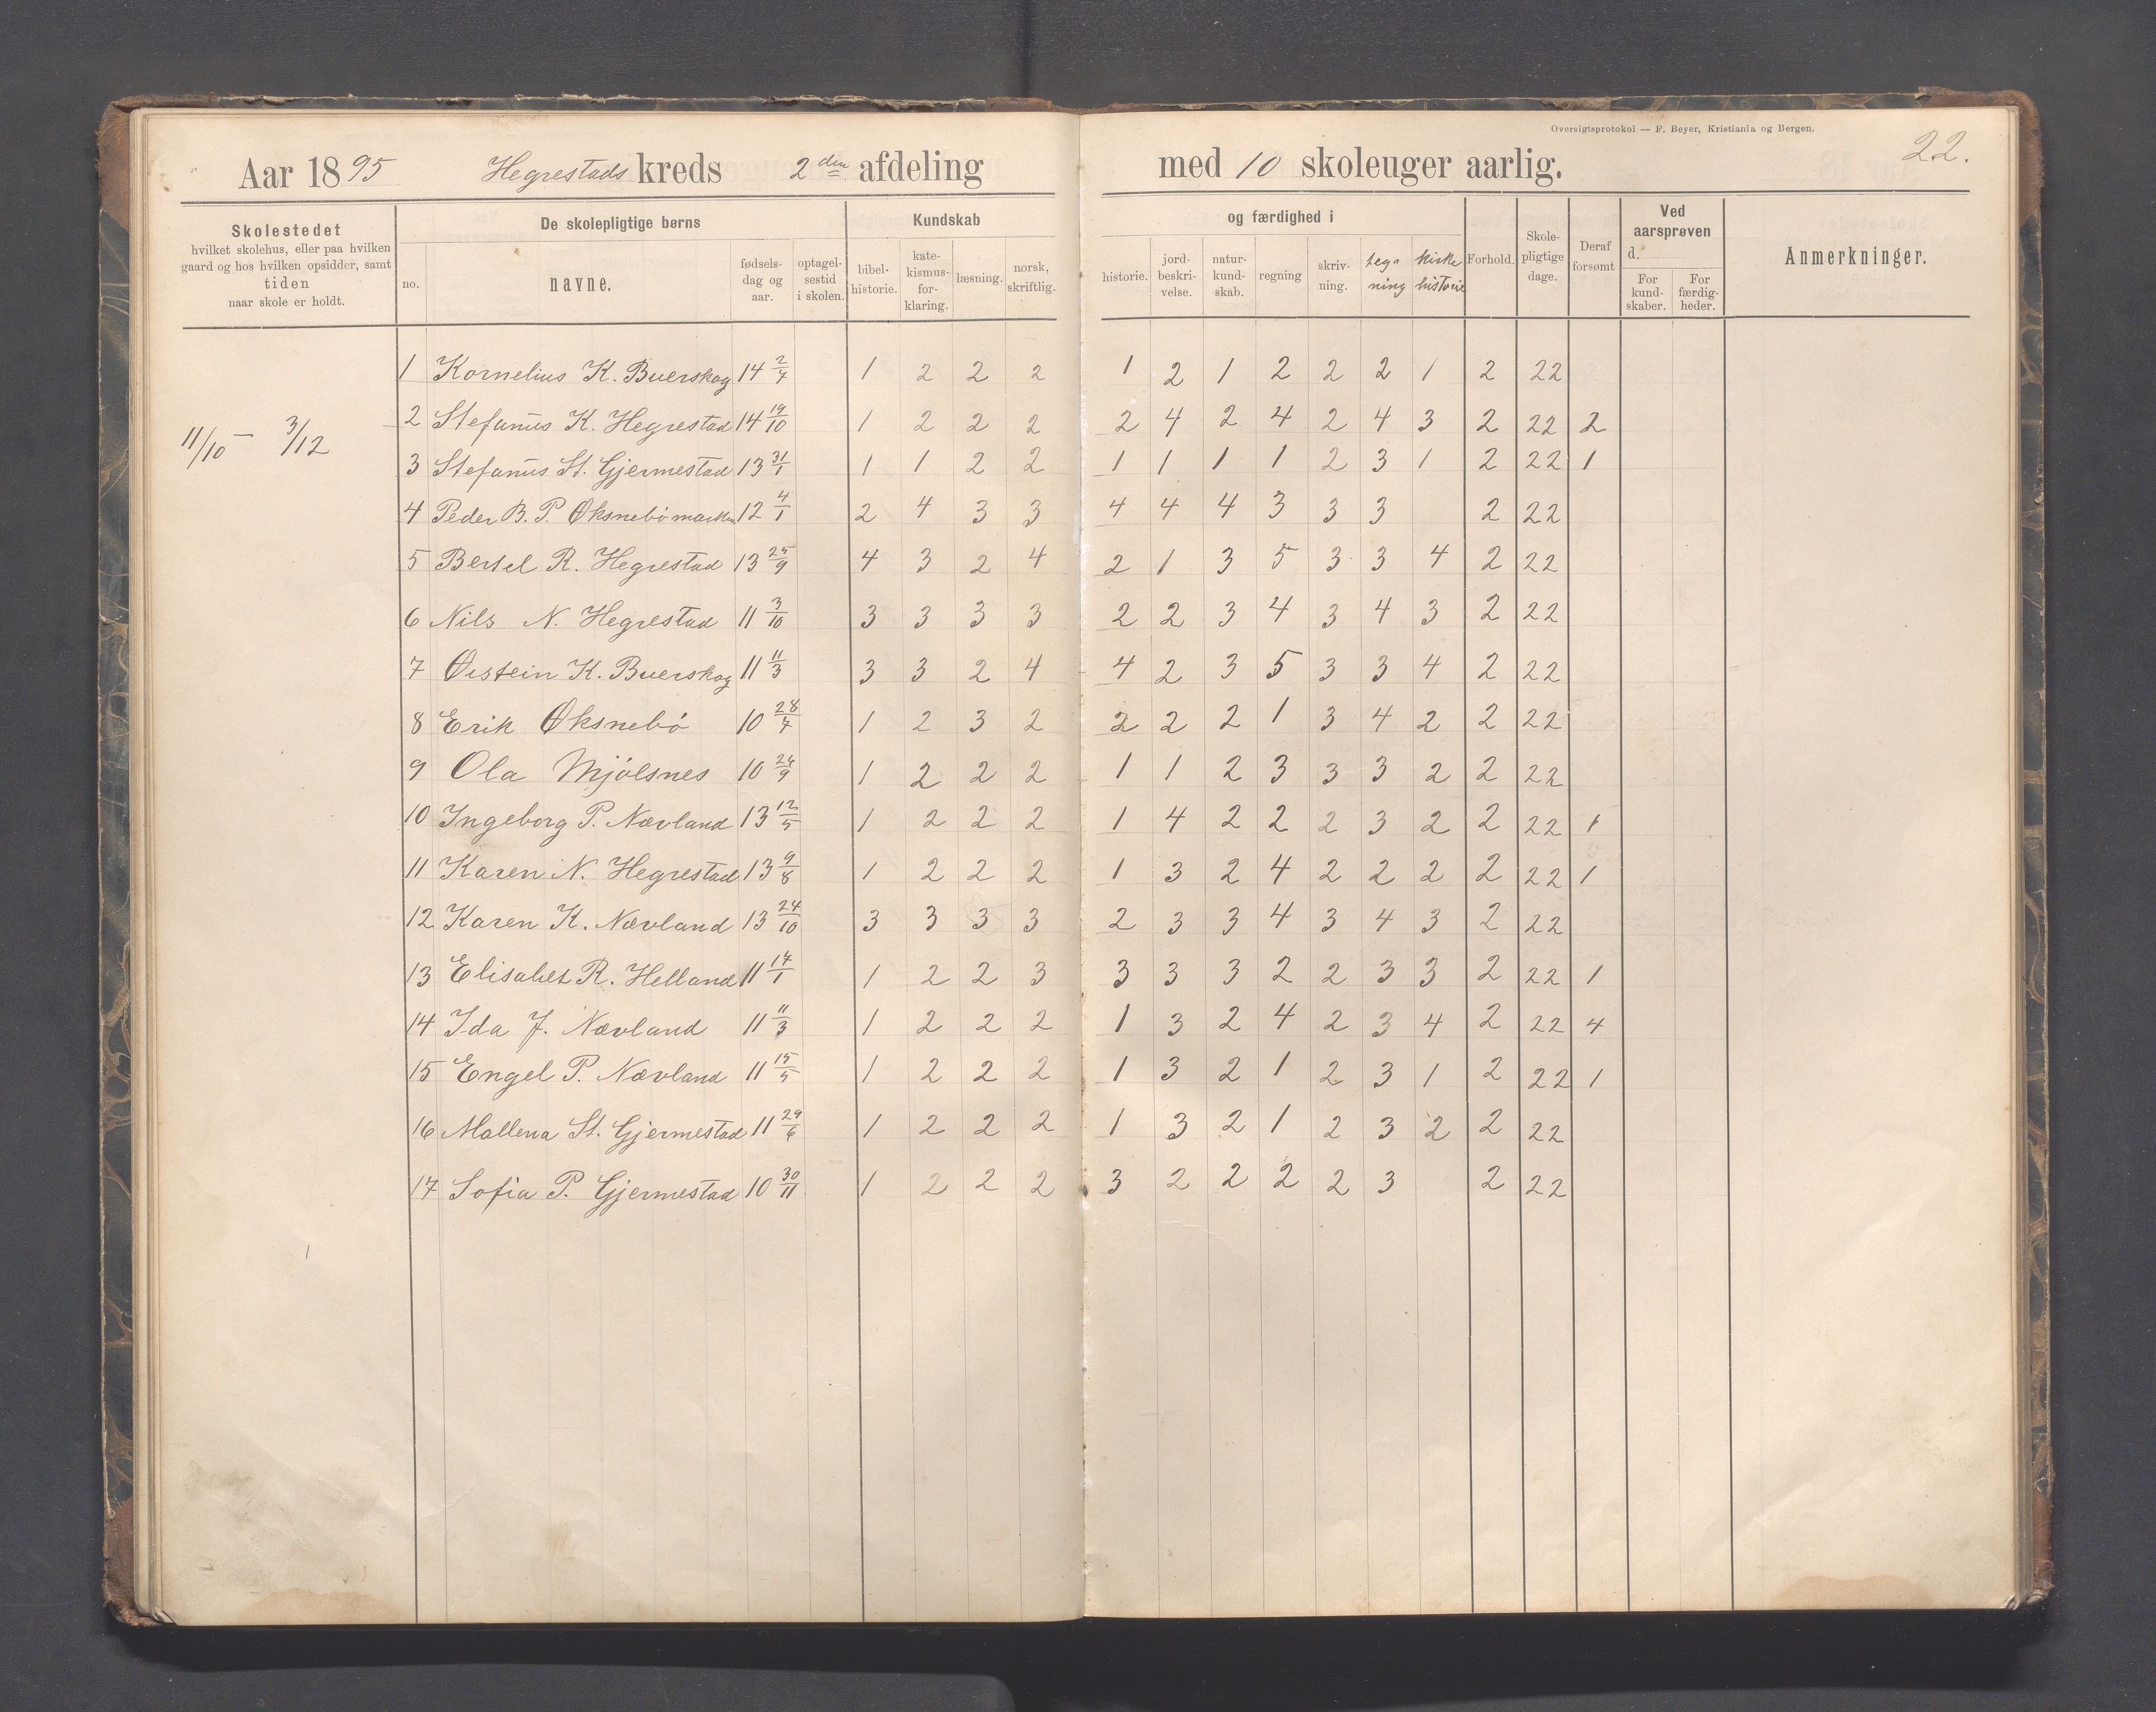 Oversigtsprotokol — F. Beyer, Kristiania og Bergen.
22.
Aar 1895 Hegrestads kreds 2den afdeling med 10 skoleuger aarlig.
Skolestedet
hvilket skolehus, eller paa hvilken
gaard og hos hvilken opsidder, samt
tiden
naar skole er holdt.
De skolepligtige børns
no.
navne.
fødsels-
dag og
aar.
optagel-
sestid
i skolen.
Kundskab
bibel-
historie.
kate-
kismus-
for-
klaring.
læsning.
norsk,
skriftlig.
og færdighed i
historie.
jord-
beskri-
velse.
natur-
kund-
skab.
regning
skriv-
ning.
tegn
ning
kirke
historie
Forhold.
Skole-
pligtige
dage.
Deraf
forsømt
Ved
aarsprøven
d.
For
kund-
skaber.
For
færdig-
heder.
Anmerkninger.
11/10 — 3/12
1 Kornelius K. Buerskog 14 2/4 1 2 2 2 1 2 1 2 2 2 1 2 22
2 Stefanus K. Hegrestad 14 19/10 1 2 2 2 2 4 2 4 2 4 3 2 22 2
3 Stefanus St. Gjermestad 13 31/1 1 1 2 2 1 1 1 1 2 3 1 2 22 1
4 Peder B. P. Øksnebømarken 12 4/1 2 4 3 3 4 4 4 3 3 3 2 22
5 Bertel R. Hegrestad 13 25/9 4 3 2 4 2 1 3 5 3 3 4 2 22
6 Nils N. Hegrestad 11 3/10 3 3 3 3 2 2 3 4 3 4 3 2 22
7 Østein K. Buerskog 11 11/3 3 3 2 4 4 2 3 5 3 3 4 2 22
8 Erik Øksnebø 10 28/7 1 2 3 2 2 2 2 1 3 4 2 2 22
9 Ola Mjølsnes 10 26/9 1 2 2 2 1 1 2 3 3 3 2 2 22
10 Ingeborg P. Nævland 13 12/5 1 2 2 2 1 4 2 2 2 3 2 2 22 1
11 Karen N. Hegrestad 13 9/8 1 2 2 2 1 3 2 4 2 2 2 2 22 1
12 Karen K. Nævland 13 24/10 3 3 3 3 2 3 3 4 3 4 3 2 22
13 Elisabet R. Helland 11 17/1 1 2 2 3 3 3 3 2 2 3 3 2 22 1
14 Ida J. Nævland 11 11/3 1 2 2 2 1 3 2 4 2 3 4 2 22 4
15 Engel P. Nævland 11 15/5 1 2 2 2 1 3 2 1 2 3 1 2 22 1
16 Mallena St. Gjermestad 11 29/6 1 2 2 2 1 3 2 1 2 3 2 2 22
17 Sofia P. Gjermestad 10 30/11 1 2 2 2 3 2 2 2 2 3 2 22